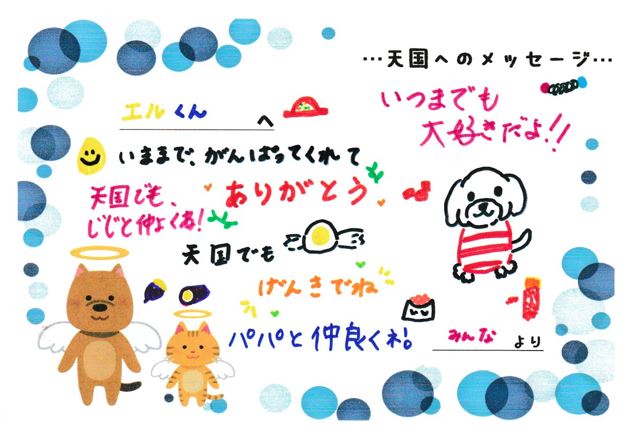 …天国へのメッセージ…
エルくん へ
いつまでも
大好きだよ!!
いままで、がんばってくれて
ありがとう
天国でも、
じじと仲よくね!
天国でも
げんきでね
パパと仲良くネ!
みんな より